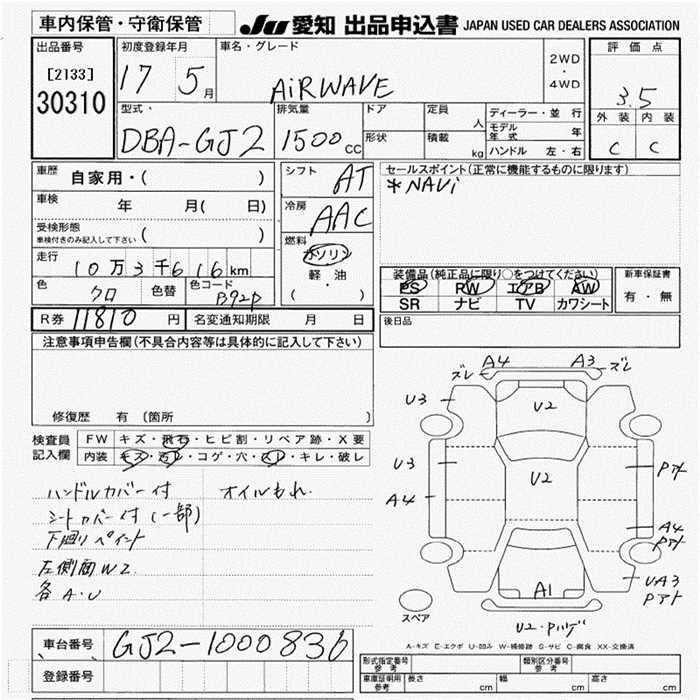 車内保管・守衛保管
JU 愛知 出品申込書 JAPAN USED CAR DEALERS ASSOCIATION
出品番号
[2133]
30310
初度登録年月
17 5月
車名・グレード
AiRWAVE
2WD
・
4WD
評価点
3.5
外装 内装
C C
型式・
DBA-GJ2
排気量
1500 CC
ドア
形状
定員
人
積載
kg
ディーラー・並行
モデル年式 年
ハンドル 左・右
車歴
自家用・( )
車検
年 月( 日)
受検形態
車検付きのみ記入して下さい ( )
走行
10万3千616km
色
クロ
色替
色コード
B92P
シフト
AT
冷房
AAC
燃料
ガソリン
軽・油
( ・ )
セールスポイント(正常に機能するものに限ります)
*NAVi
装備品(純正品に限り○をつけてください)
PS PW エアB AW
SR ナビ TV カワシート
新車保証書
有・無
R券 11810 円
名変通知期限 月 日
後日品
注意事項申告欄(不具合内容等は具体的に記入して下さい)
修復歴 有 (箇所 )
検査員
記入欄
FW キズ・飛石・ヒビ割・リペア跡・X要
内装 キズ・汚レ・コゲ・穴・スレ・キレ・破レ
ハンドルカバー付 オイルもれ.
シートカバー付(一部)
下廻りペイント
左側面W2.
各A.U
ズレ A4 A3 ズレ
U3 U2
U3 U2 Pアト
A4 A4 Pアト
A1 UA3 Pアト
スペア
U2・Pハゲ
A-キズ E-エクボ U-凹み W-補修跡 S-サビ C-腐食 XX-交換済
車台番号 GJ2-1000836
登録番号
形式指定番号
参考
類別区分番号
参考
車庫証明用
参考
長さ cm 幅 cm 高さ cm